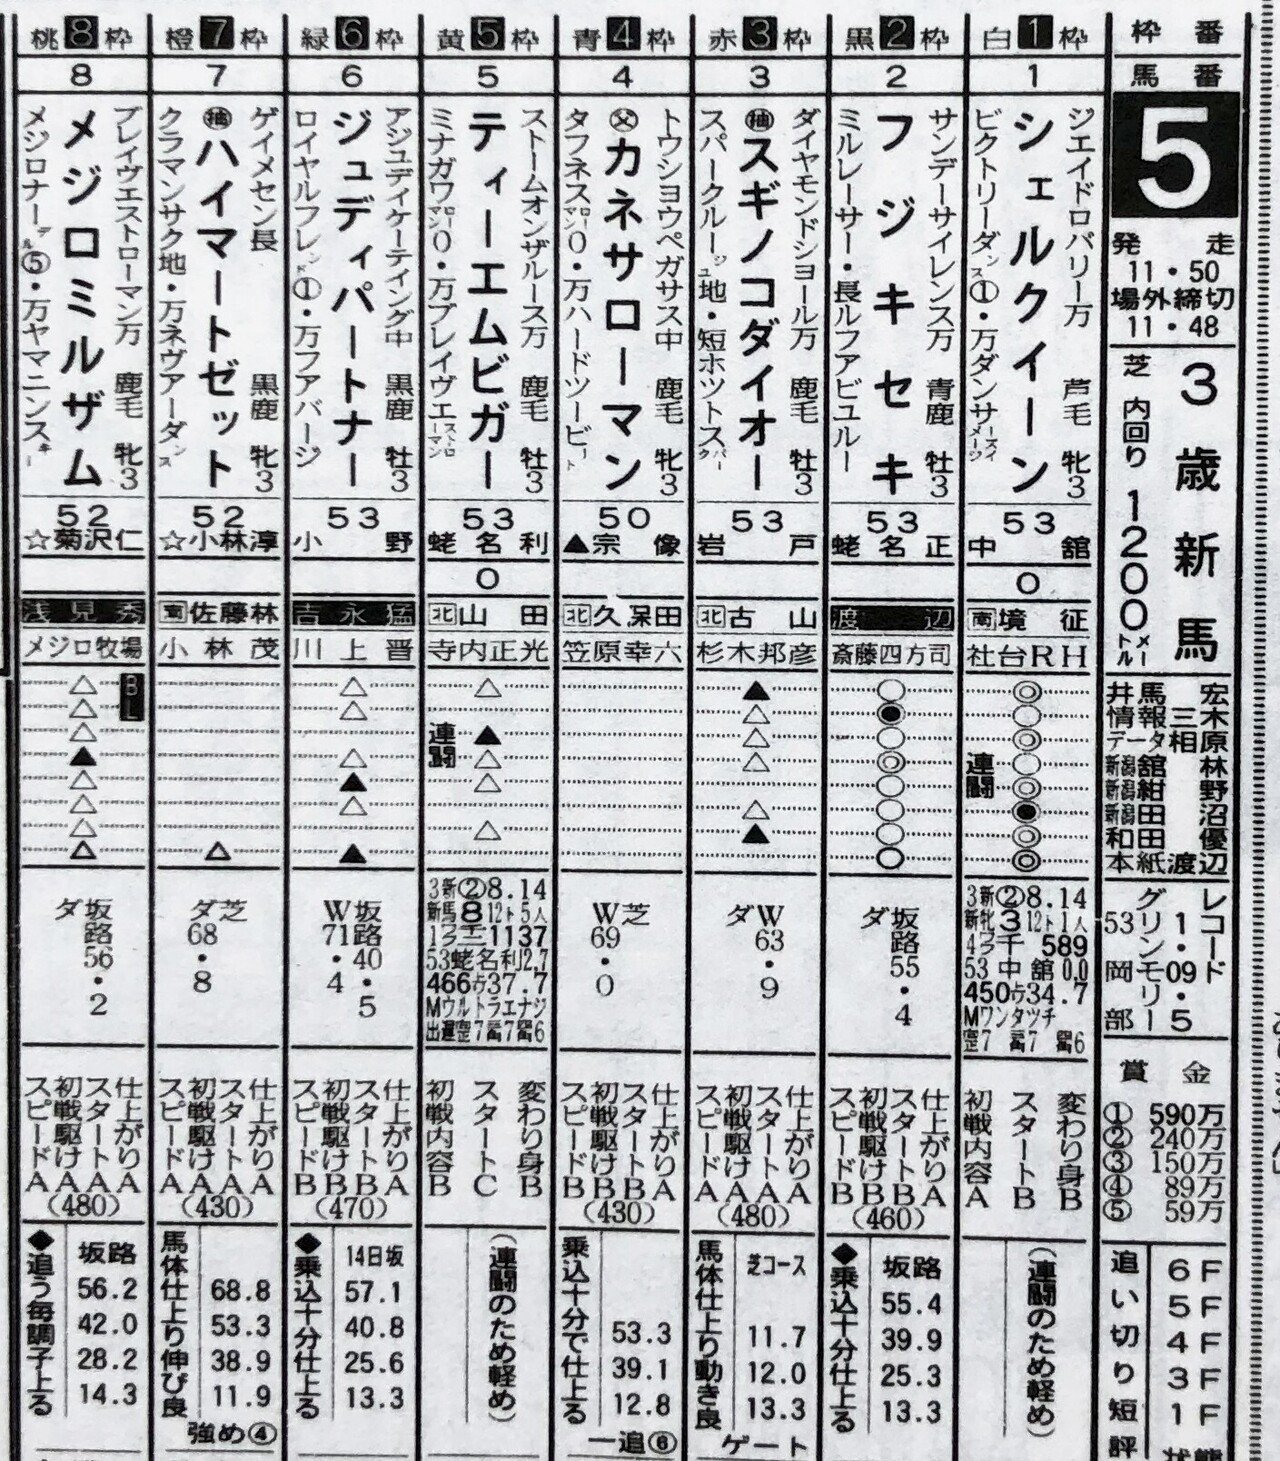 枠番
馬番
5
発走
11・50
場外締切
11・48
3歳新馬
芝 内回り 1200メートル
井馬 宏
情報三木
データ相原
新潟舘 林
新潟紺 野
新潟田 沼
和田 優
本紙渡辺
レコード
1・09・5
グリンモリー
53 岡部
賞金
① 590万
② 240万
③ 150万
④ 89万
⑤ 59万
追い切り短評
6F
5F
4F
3F
1F
白1枠
1
ジェイドロバリー万 芦毛 牝3
シェルクイーン
ビクトリーダンス①・万ダンサーズイメージ
53
中舘
0
南境征
社台RH
◎
○
◎
○
◎
●
◎
◎
連闘
3新②8.14
新牝3 12ト1人
589
53中舘0.0
450 34.7
Mワンタツチ
変わり身B
スタートB
初戦内容A
(連闘のため軽め)
黒2枠
2
サンデーサイレンス万 青鹿 牡3
フジキセキ
ミルレーサー・長ルフアビユルー
53
蛯名正
渡辺
斎藤四方司
○
●
○
◎
○
○
○
○
坂路55・4
ダ
仕上がりA
スタートB
初戦駆けB
スピードB
(460)
坂路
55.4
39.9
25.3
13.3
◆乗込十分仕上る
赤3枠
3
ダイヤモンドシヨール万 鹿毛 牡3
抽スギノコダイオー
スパークルージュ地・短ホツトスパーク
53
岩戸
北古山
杉木邦彦
▲
△
△
△
△
▲
W63・9
ダ
仕上がりA
スタートA
初戦駆けA
スピードA
(480)
芝コース
11.7
12.0
13.3
馬体仕上り動き良
ゲート
青4枠
4
トウシヨウペガサス中 鹿毛 牝3
父カネサローマン
タフネスローマン0・万ハードツービート
50
▲宗像
北久保田
笠原幸六
芝
W69・0
仕上がりA
スタートB
初戦駆けB
スピードB
(430)
53.3
39.1
12.8
乗込十分で仕上る
一追⑥
黄5枠
5
ストームオンザルース万 鹿毛 牡3
ティーエムビガー
ミナガワローマン0・万ブレイヴエストローマン
53
蛯名利
0
北山田
寺内正光
△
▲
△
△
△
連闘
3新②8.14
新馬8 12ト5人
1137
53蛯名利2.7
466 37.7
Mウルトラエナジ
変わり身B
スタートC
初戦内容B
(連闘のため軽め)
緑6枠
6
アジュディケーティング中 黒鹿 牡3
ジュディパートナー
ロイヤルフレンド①・万フアバージ
53
小野
吉永猛
川上晋
△
△
△
▲
△
▲
坂路40・5
W71・4
仕上がりA
スタートB
初戦駆けB
スピードB
(470)
14日坂
57.1
40.8
25.6
13.3
◆乗込十分仕上る
橙7枠
7
ゲイメセン長 黒鹿 牝3
抽ハイマートゼット
クラマンサク地・万ネヴアーダンス
52
☆小林淳
南佐藤林
小林茂
△
芝
ダ68・8
仕上がりA
スタートA
初戦駆けA
スピードA
(430)
68.8
53.3
38.9
11.9
馬体仕上り伸び良
強め④
桃8枠
8
ブレイヴエストローマン万 鹿毛 牝3
メジロミルザム
メジロナーデル⑤・万ヤマニンスキー
52
☆菊沢仁
浅見秀
メジロ牧場
BL
△
△
△
▲
△
△
△
△
坂路56・2
ダ
仕上がりA
スタートA
初戦駆けA
スピードA
(480)
坂路
56.2
42.0
28.2
14.3
◆追う毎調子上る